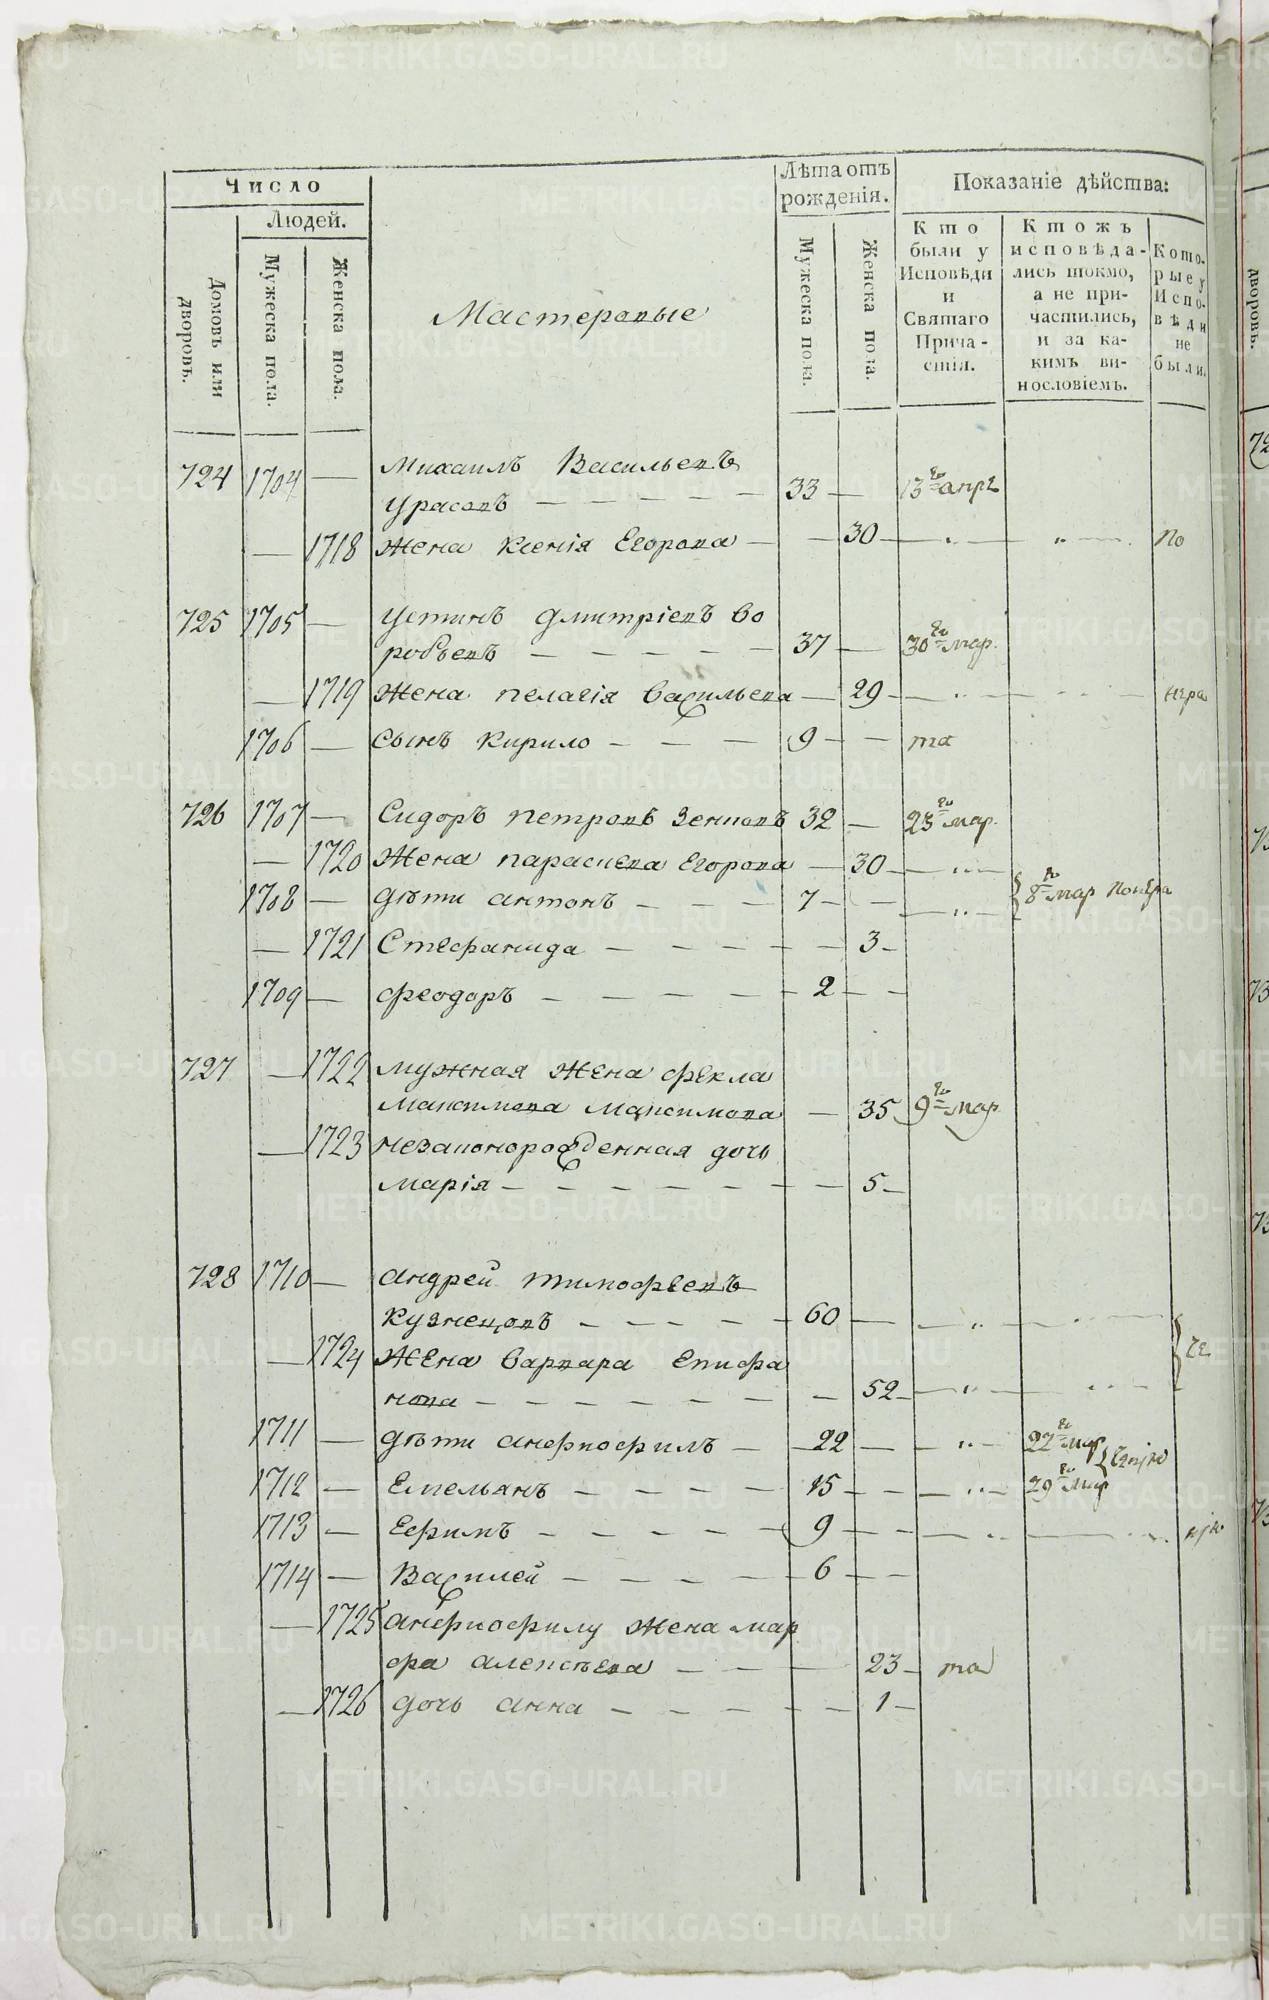 Число
Людей.
Домовъ или дворовъ.
Мужеска пола.
Женска пола.
Мастеровые
Лѣта отъ рожденія.
Мужеска пола.
Женска пола.
Показаніе дѣйства:
Кто были у Исповѣди и Святаго Прича-стія.
Ктожъ исповѣда-лись токмо, а не при-частились, и за ка-кимъ ви-нословіемъ.
Кото-рые у Испо-вѣди не были.
724 1704 — Михаилъ Васильевъ
Урасовъ — — — — — 33 — 13го апр
— 1718 Жена Ксенія Егорова — — 30 — „ — „ — по
725 1705 — Устинъ Дмитріевъ Во
робьевъ — — — — — 37 — 30го мар.
— 1719 Жена Пелагія Васильева — 29 — „ — „ — нера
1706 — Сынъ Кирило — — — 9 — — та
726 1707 — Сидоръ Петровъ Зенковъ 32 — 23го мар.
— 1720 Жена Параскева Егорова — 30 — „ —
1708 — Дѣти Антонъ — — — 7 — — „ — 8го мар понера
— 1721 Стефанида — — — — — 3 —
1709 — Феодоръ — — — — — 2 — —
727 — 1722 Мужная жена Фекла
Максимова Максимова — 35 9го мар
— 1723 Незаконорожденная дочь
Марія — — — — — — — 5 —
728 1710 — Андрей Тимофеевъ
Кузнецовъ — — — — — 60 — — „ — „ —
— 1724 Жена Варвара Епифа
нова — — — — — — — 52 — „ — „ —
1711 — Дѣти Анфиофилъ — 22 — — „ — 22го мар
1712 — Емельянъ — — — — 15 — — — „ — 29го мар
1713 — Ефимъ — — — — — 9 — — — „ — „
1714 — Василей — — — — — 6 — —
— 1725 Анфиофилу жена Мар
фа Алексѣева — — — 23 — та
— 1726 дочь Анна — — — — — 1 —
METRIKI.GASO-URAL.RU